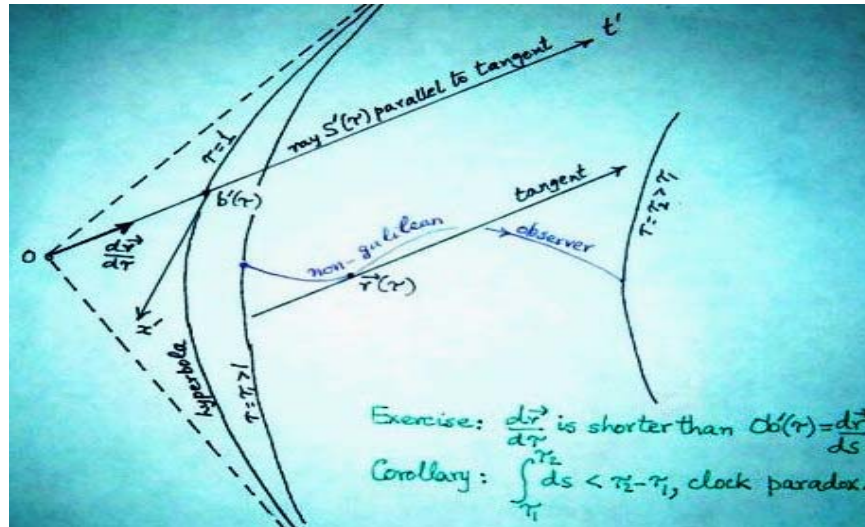 t'
ray S'(τ) parallel to tangent
τ=1
b'(τ)
tangent
τ=τ₂>τ₁
O
dr⃗/dτ
non-galilean
observer
r⃗(τ)
x'
hyperbola
τ=τ₁>1
Exercise: dr⃗/dτ is shorter than Ob'(τ)=dr⃗/ds
Corollary: ∫_τ₁^τ₂ ds < τ₂-τ₁, clock paradox.